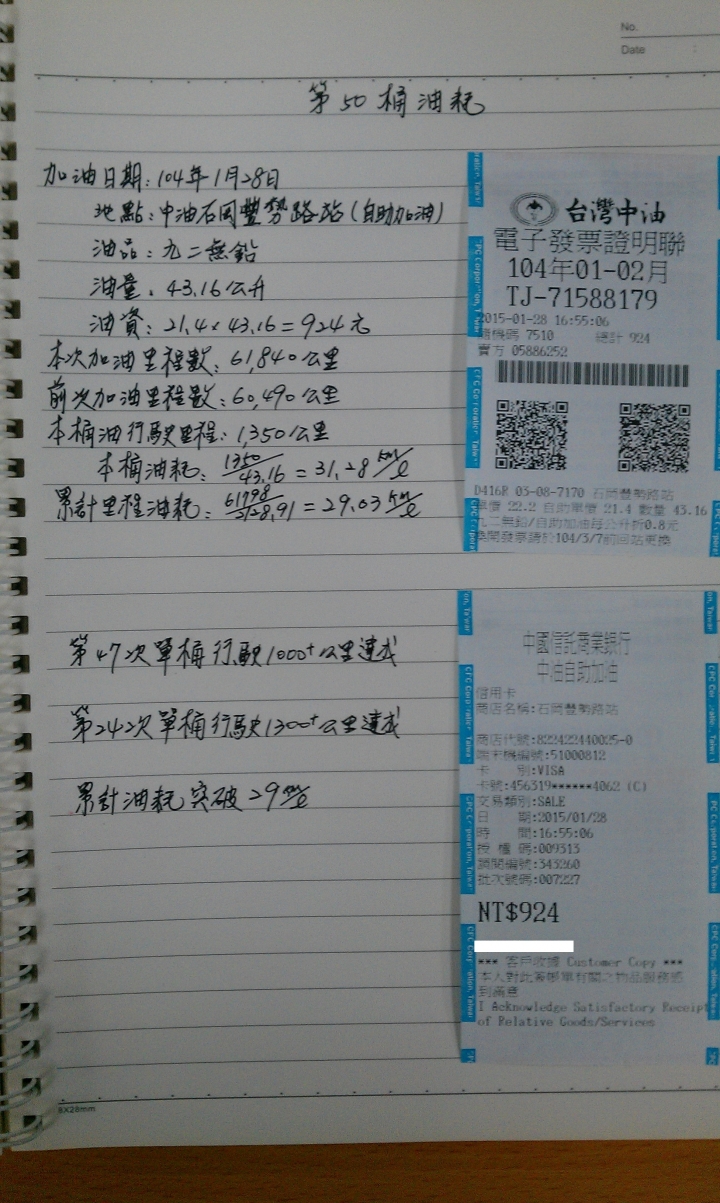 No.
Date :
第50桶油耗
加油日期：104年1月28日
地點：中油石岡豐勢路站（自助加油）
油品：九二無鉛
油量：43.16公升
油資：21.4×43.16＝924元
本次加油里程數：61,840公里
前次加油里程數：60,490公里
本桶油行駛里程：1,350公里
本桶油耗：1350/43.16＝31.28 km/ℓ
累計里程油耗：61798/2128.91＝29.03 km/ℓ
第47次單桶行駛1000+公里達成
第24次單桶行駛1300+公里達成
累計油耗突破29 km/ℓ
8X28mm
台灣中油
電子發票證明聯
104年01-02月
TJ-71588179
2015-01-28 16:55:06
隨機碼 7510 總計 924
賣方 05886252
D416R 03-08-7170 石岡豐勢路站
單價 22.2 自助單價 21.4 數量 43.16
九二無鉛/自助加油每公升折0.8元
換開發票請於104/3/7前回站更換
中國信託商業銀行
中油自助加油
信用卡
商店名稱:石岡豐勢路站
商店代號:822422440025-0
端末機編號:51000812
卡 別:VISA
卡號:456319******4062 (C)
交易類別:SALE
日 期:2015/01/28
時 間:16:55:06
授 權 碼:009313
調閱編號:343260
批次號碼:007227
NT$924
*** 客戶收據 Customer Copy ***
本人對此簽帳單有關之物品服務感
到滿意
I Acknowledge Satisfactory Receipt
of Relative Goods/Services
CPC Corporation, Taiwan